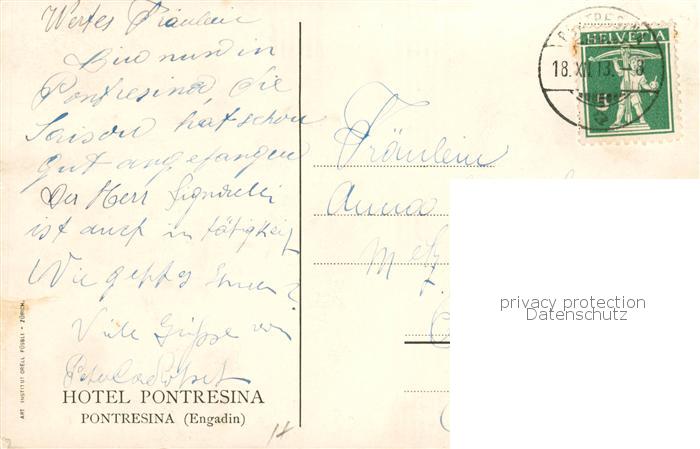 Wertes Fräulein
Bin nun in
Pontresina die
Saison hat schon
gut angefangen
Der Herr Signorelli
ist auch in tätigkeit
Wie geht es Ihnen?
Viele Grüsse von
Peter
HOTEL PONTRESINA
PONTRESINA (Engadin)
ART. INSTITUT ORELL FÜSSLI - ZÜRICH.
HELVETIA
18.XII.13.-8
5
Fräulein
Anna
privacy protection
Datenschutz